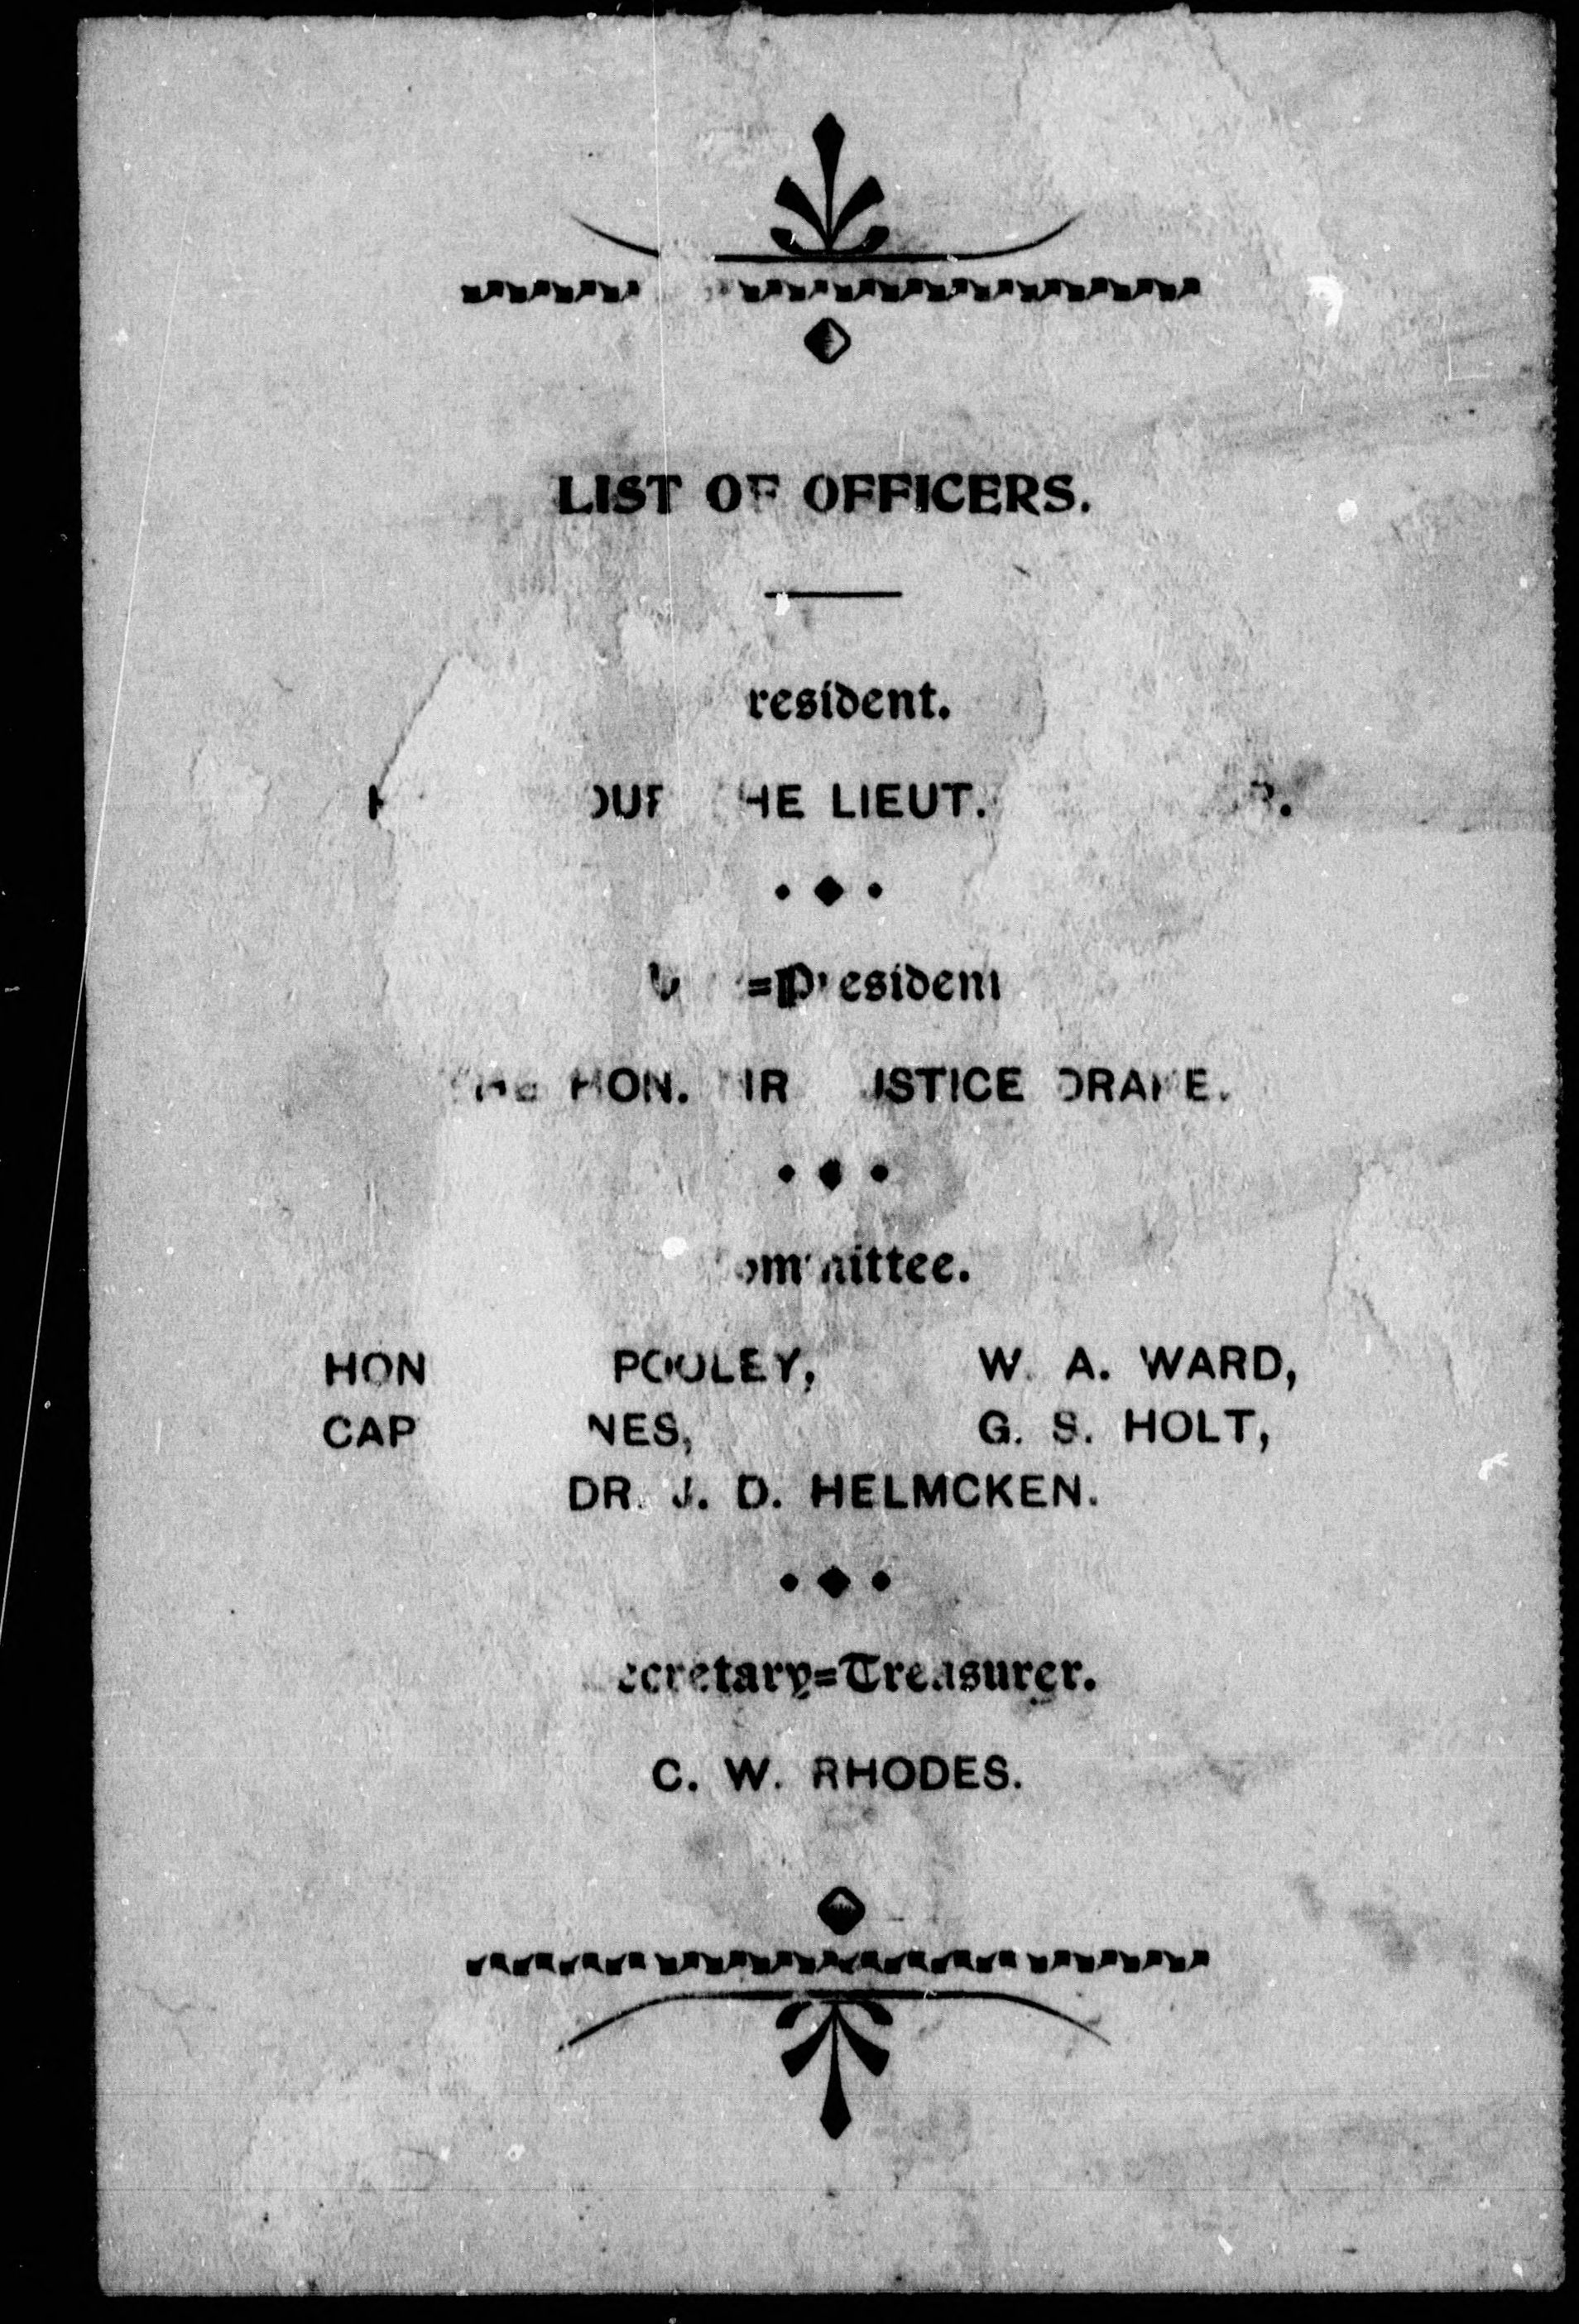 LIST OF OFFICERS.
resident.
HE LIEUT.
=President
HON. JUSTICE DRAKE.
ommittee.
HON POOLEY, W. A. WARD,
CAP NES, G. S. HOLT,
DR. J. D. HELMCKEN.
ecretary=Treasurer.
C. W. RHODES.